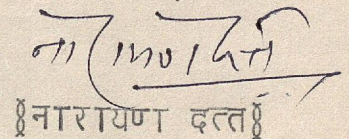 नारायणदत्त
नारायण दत्त